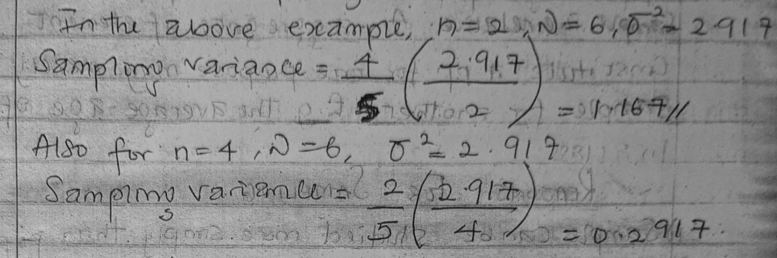 In the above example, n=2, N=6, σ²=2.917
Sampling variance = 4/5 (2.917/2) = 1.167//
Also for n=4, N=6, σ²=2.917
Sampling variance = 2/5 (2.917/4) = 0.2917.